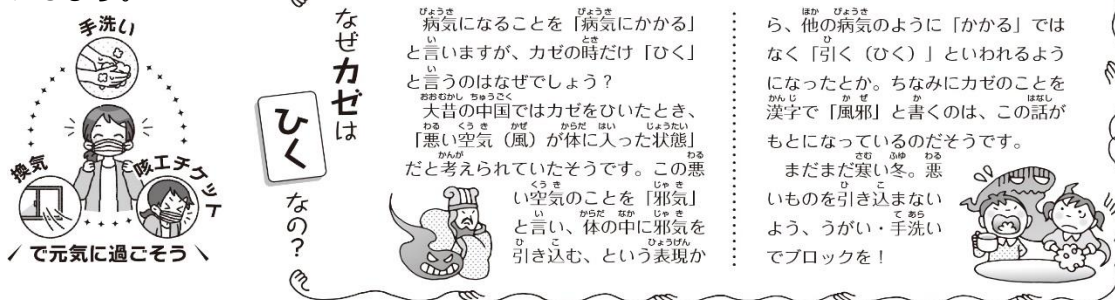 手洗い
換気
咳エチケット
で元気に過ごそう
なぜカゼは
ひく
なの？
病気になることを「病気にかかる」
と言いますが、カゼの時だけ「ひく」
と言うのはなぜでしょう？
大昔の中国ではカゼをひいたとき、
「悪い空気（風）が体に入った状態」
だと考えられていたそうです。この悪
い空気のことを「邪気」
と言い、体の中に邪気を
引き込む、という表現か
ら、他の病気のように「かかる」では
なく「引く（ひく）」といわれるよう
になったとか。ちなみにカゼのことを
漢字で「風邪」と書くのは、この話が
もとになっているのだそうです。
まだまだ寒い冬。悪
いものを引き込まない
よう、うがい・手洗い
でブロックを！